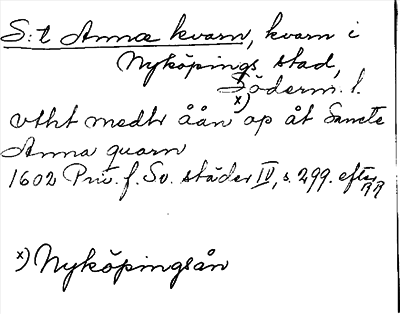 S:t Annæ kvarn, kvarn i
Nyköpings stad,
Söderm. l.
x)
vtht medh åån op åt Sancte
Anna quarn
1602 Priv. f. Sv. städer IV, s. 299. efter
RR
x) Nyköpingsån